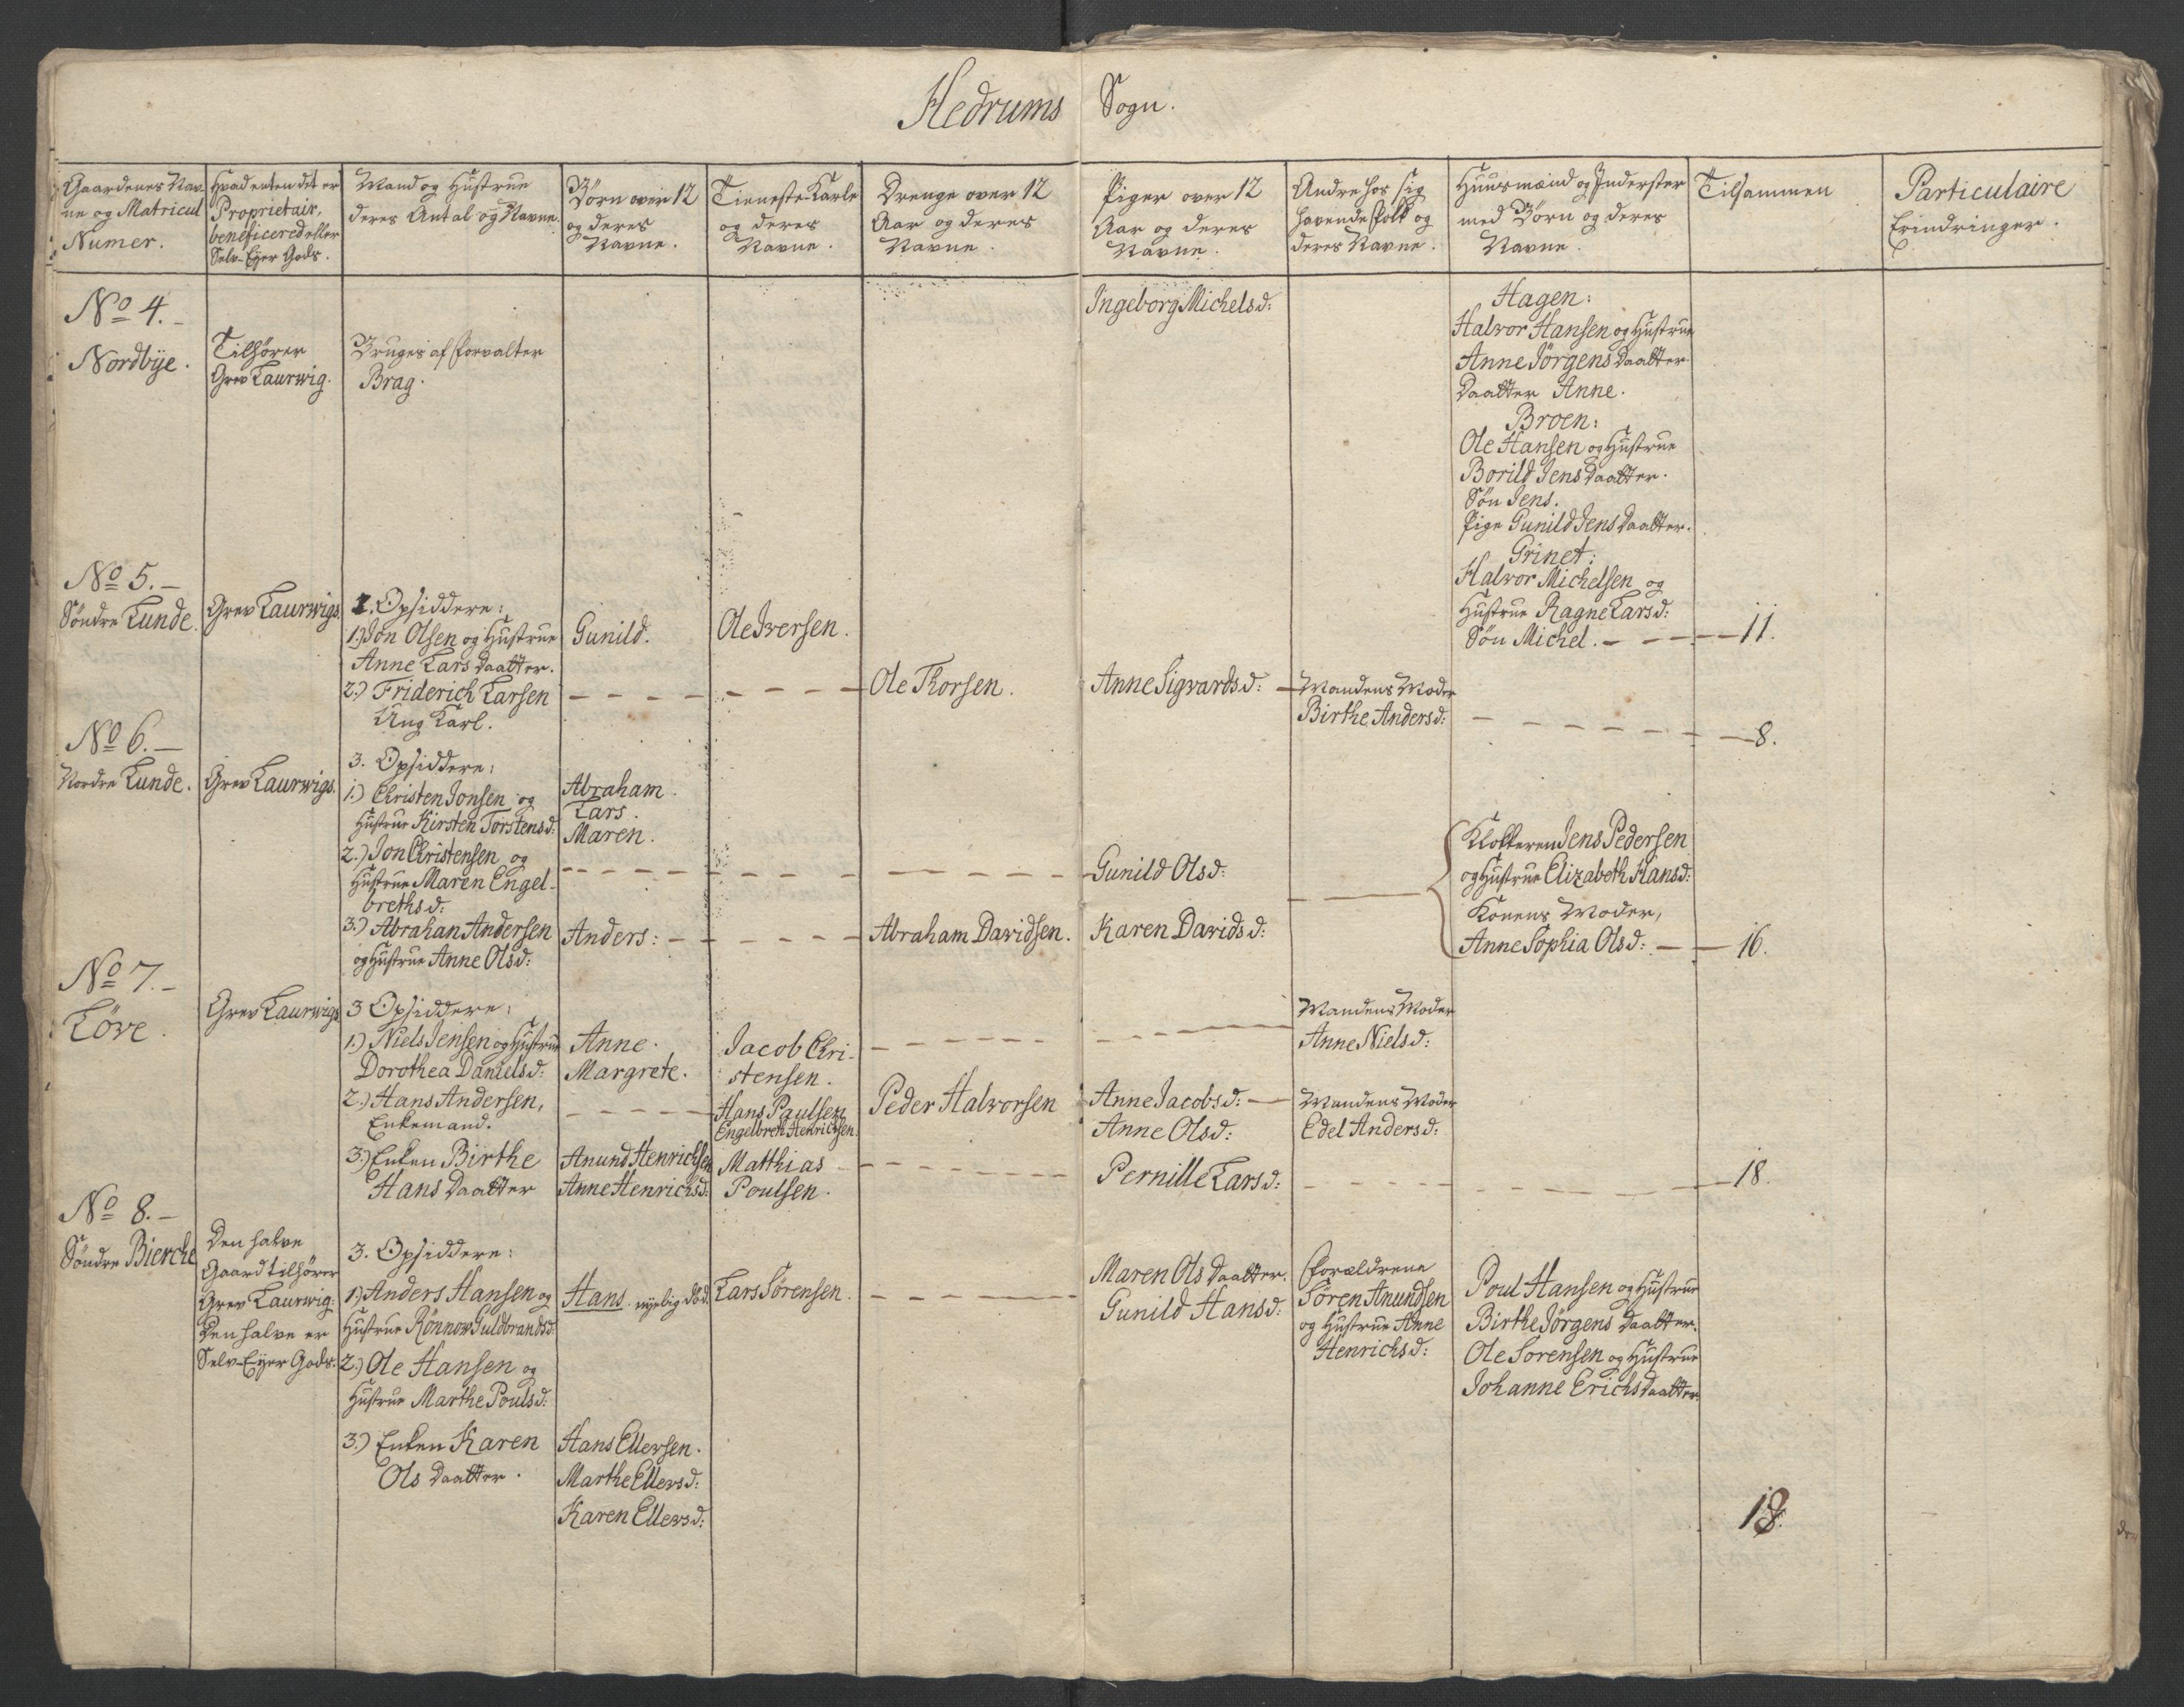 Hedrums Sogn.
Gaardenes Nav-
ne og Matricul
Numer.
Hvad enten det er
Proprietair,
beneficered eller
Selv-Eyer Gods.
Mand og Hustrue
deres Antal og Navne.
Börn over 12
og deres
Navne.
Tieneste Karle
og deres
Navne.
Drenge over 12
Aar og deres
Navne.
Piger over 12
Aar og deres
Navne.
Andre hos sig
havende Folk og
deres Navne.
Huusmænd og Inderster
med Börn og deres
Navne.
Tilsammen
Particulaire
Erindringer.
No 4.
Nordbye.
Tilhörer
Grev Laurwig.
Bruges af Forvalter
Brag.
Ingeborg Michelsd:
Hagen:
Halvor Hansen og Hustrue
Anne Jörgens Daatter
Daatter Anne.
Broen:
Ole Hansen og Hustrue
Borild Jens Daatter.
Sön Jens.
Pige Gunild Jens Daatter.
Grinet:
Halvor Michelsen og
Hustrue Ragne Larsd:
Sön Michel. 11.
No 5.
Söndre Lunde.
Grev Laurwigs.
2. Opsiddere:
1.) Jon Olsen og Hustrue
Anne Lars Daatter.
2.) Friderich Larsen
Ung Karl.
Gunild.
Ole Iversen.
Ole Thorsen.
Anne Sigvardsd:
Mandens Moder
Birthe Andersd:
8.
No 6.
Nordre Lunde.
Grev Laurwigs.
3. Opsiddere:
1.) Christen Jonsen og
Hustrue Kirsten Torstensd:
2.) Jon Christensen og
Hustrue Maren Engel-
brethsd:
3.) Abrahan Andersen
og Hustrue Anne Olsd:
Abraham.
Lars.
Maren.
Anders:
Abraham Davidsen.
Gunild Olsd:
Karen Davidsd:
Klokkeren Jens Pedersen
og Hustrue Elizabeth Hansd:
Konens Moder,
Anne Sophia Olsd: 16.
No 7.
Löve.
Grev Laurwigs
3 Opsiddere:
1.) Niels Jensen og Hustrue
Dorothea Danielsd:
2.) Hans Andersen,
Enkemand.
3.) Enken Birthe
Hans Daatter
Anne.
Margrete.
Anund Henrichsen
Anne Henrichsd:
Jacob Chri-
stensen.
Hans Paulsen
Engelbreth Henrichsen.
Matthias
Poulsen.
Peder Halvorsen
Anne Jacobsd:
Anne Olsd:
Pernille Larsd:
Mandens Moder
Anne Nielsd:
Mandens Moder
Edel Andersd:
18.
No 8.
Söndre Bierche
Den halve
Gaard tilhörer
Grev Laurwig:
Den halve er
Selv-Eyer Gods.
3. Opsiddere:
1.) Anders Hansen og
Hustrue Rönnow Guldbrandsd:
2.) Ole Hansen og
Hustrue Marthe Poulsd:
3.) Enken Karen
Ols Daatter.
Hans. nyelig död.
Hans Ellersen.
Marthe Ellersd:
Karen Ellersd:
Lars Sörensen.
Maren Ols Daatter.
Gunild Hansd:
Forældrene
Sören Anundsen
og Hustrue Anne
Henrichsd:
Poul Hansen og Hustrue
Birthe Jörgens Daatter.
Ole Sorensen og Hustrue
Johanne Erichs Daatter.
18.